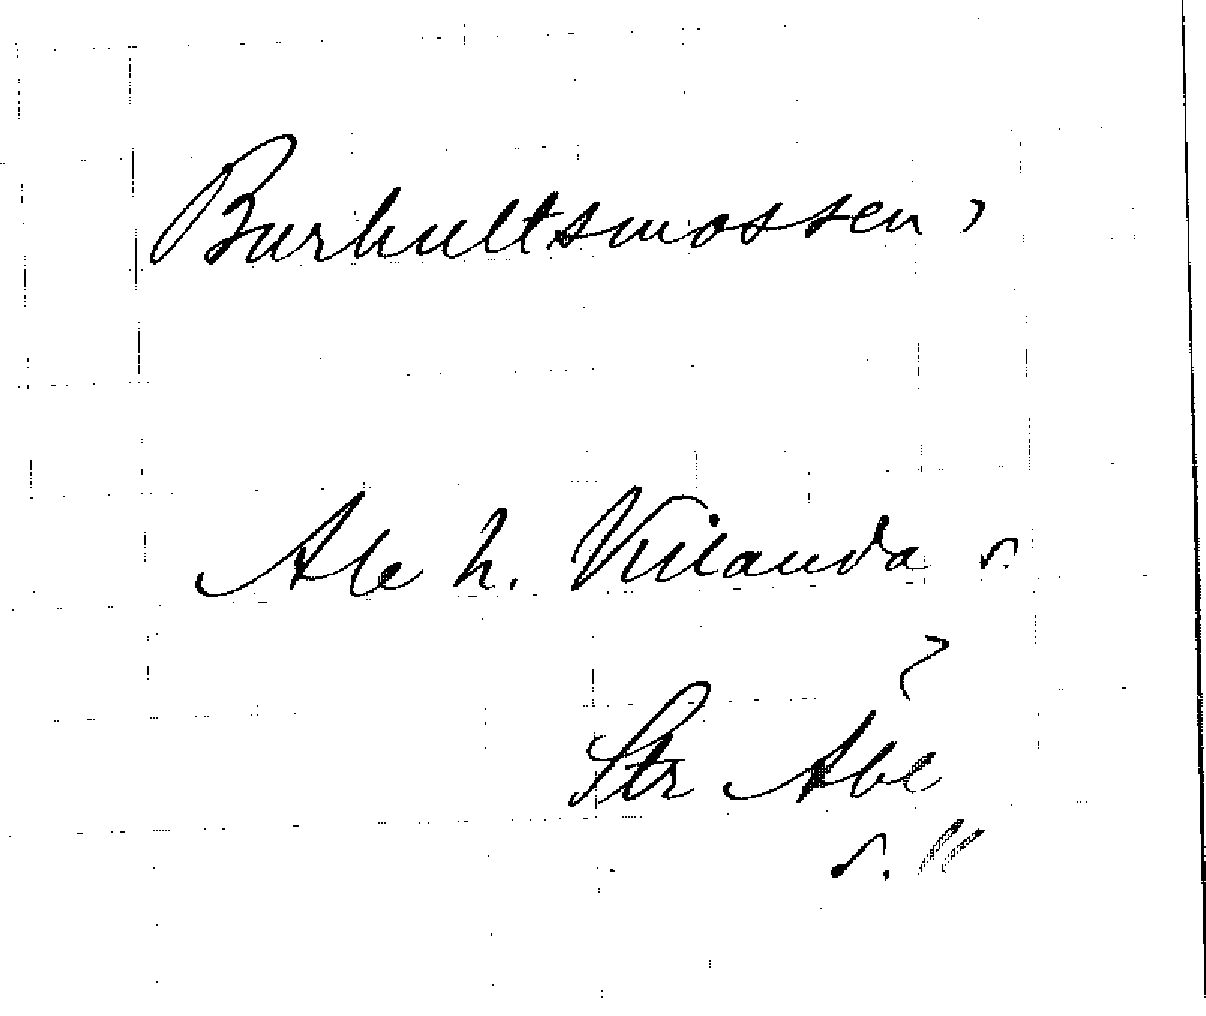 Burhultsmossen,
Ale h. Kilanda s.
?
Str Abc
s. 11